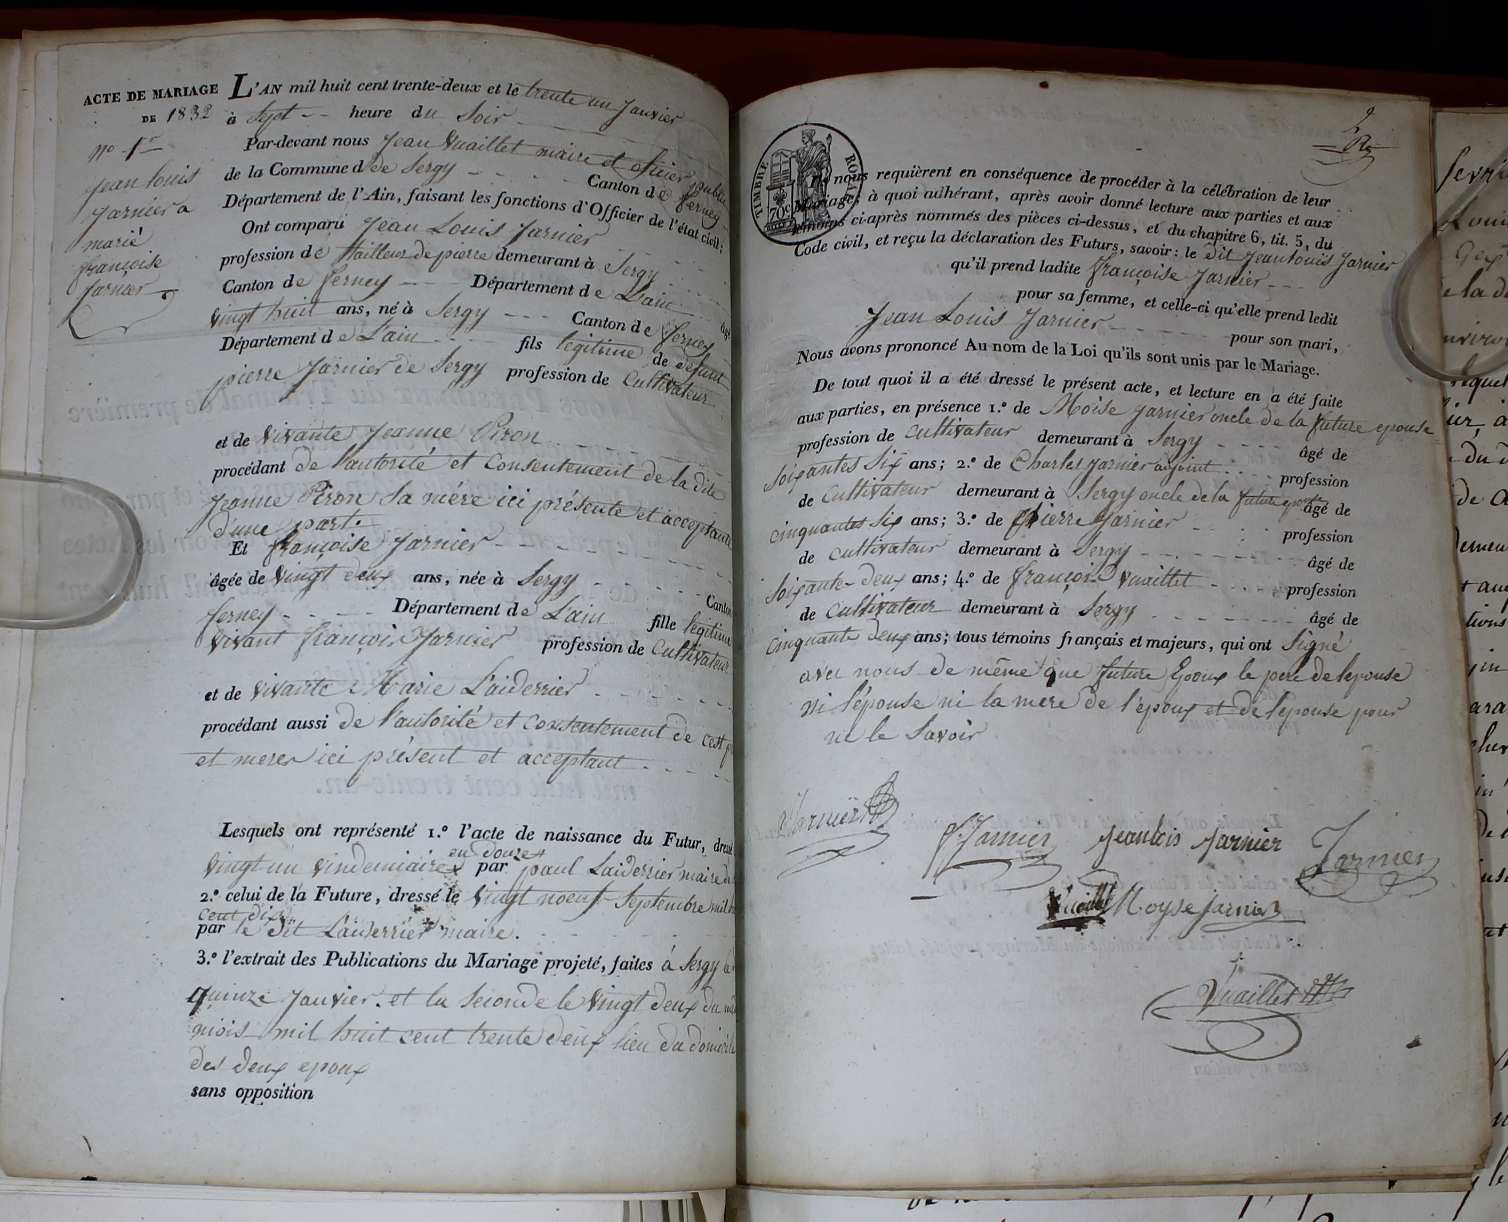 ACTE DE MARIAGE
DE 1832
n° 1er
Jean Louis
Jarnier a
marié
françoise
Jarnier
L'AN mil huit cent trente-deux et le trente un Janvier
à Sept heure du Soir
Par-devant nous Jean Vuaillet maire et officier public
de la Commune d de Sergy Canton de ferney
Département de l'Ain, faisant les fonctions d'Officier de l'état civil;
Ont comparu Jean Louis Jarnier
profession de tailleur de pierre demeurant à Sergy
Canton de ferney Département de L'ain âgé
vingt huit ans, né à Sergy Canton de ferney
Département de L'ain fils légitime de défunt
pierre Jarnier de Sergy profession de Cultivateur
et de vivante Jeanne Piron
procédant de l'autorité et Consentement de la dite
Jeanne Piron Sa mére ici présente et acceptante
d'une part.
Et françoise Jarnier
âgée de vingt deux ans, née à Sergy Canton
ferney Département de L'ain fille légitime
vivant françois Jarnier profession de Cultivateur
et de vivante Marie Laiderrier
procédant aussi de l'autorité et consentement de cest
et meres ici présent et acceptant
Lesquels ont représenté 1.° l'acte de naissance du Futur, dressé
an douze
vingt un vindemiaire par paul Laiderrier maire
2.° celui de la Future, dressé le vingt noeuf Septembre mil
cent dix
par le dit Laiderrier maire.
3.° l'extrait des Publications du Mariage projeté, faites à Sergy
quinze Janvier. et la Seconde le vingt deux du
mois mil huit cent trente deux lieu du domicile
des deux epoux
sans opposition
2
TIMBRE ROYAL
70c
nous requièrent en conséquence de procéder à la célébration de leur
Mariage; à quoi adhérant, après avoir donné lecture aux parties et aux
témoins ci-après nommés des pièces ci-dessus, et du chapitre 6, tit. 5, du
Code civil, et reçu la déclaration des Futurs, savoir: le dit Jean louis Jarnier
qu'il prend ladite françoise Jarnier
pour sa femme, et celle-ci qu'elle prend ledit
Jean Louis Jarnier pour son mari,
Nous avons prononcé Au nom de la Loi qu'ils sont unis par le Mariage.
De tout quoi il a été dressé le présent acte, et lecture en a été faite
aux parties, en présence 1.° de Moïse Jarnier oncle de la future epouse
profession de cultivateur demeurant à Sergy âgé de
soixantes Six ans; 2.° de Charles Jarnier adjoint profession
de Cultivateur demeurant à Sergy oncle de la future epouse âgé de
cinquantes Six ans; 3.° de pierre Jarnier profession
de cultivateur demeurant à Sergy âgé de
soixante-deux ans; 4.° de françois vuaillet profession
de Cultivateur demeurant à Sergy âgé de
cinquante deux ans; tous témoins français et majeurs, qui ont Signé
avec nous de même que future Epoux le pere de lepouse
ni l'épouse ni la mere de l'epoux et de lepouse pour
ne le Savoir
Jarnier
Jarnier Jeanlois Jarnier Jarnier
Vuaillet Moyse Jarnier
Vuaillet